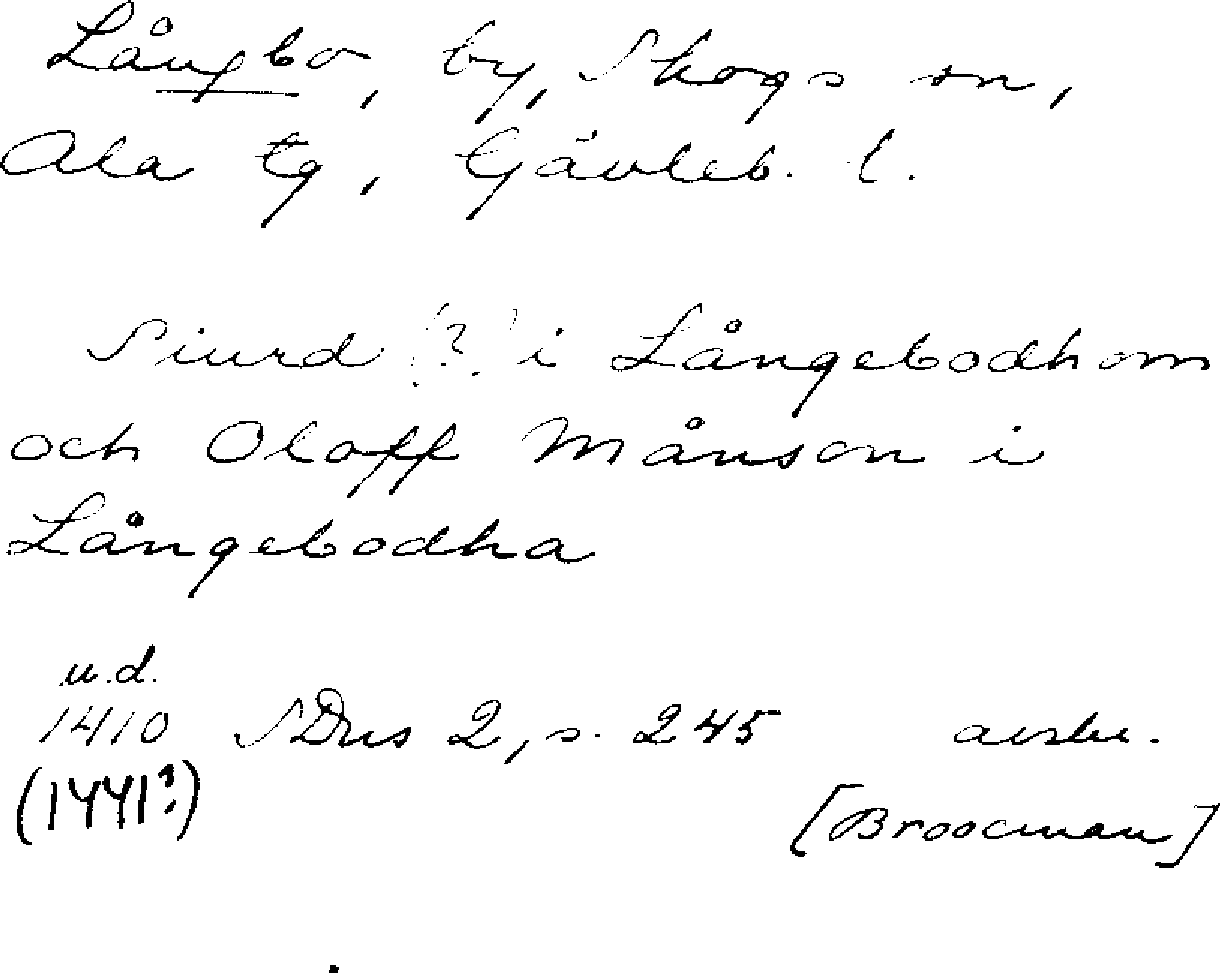 Långbo, by, Skogs sn,
Ala tg, Gävleb. l.
Siurd (?) i Långebodhom
och Oloff Månson i
Långebodha
u.d.
1410 SDns 2, s. 245 avskr.
(1441?)
[Broocman]